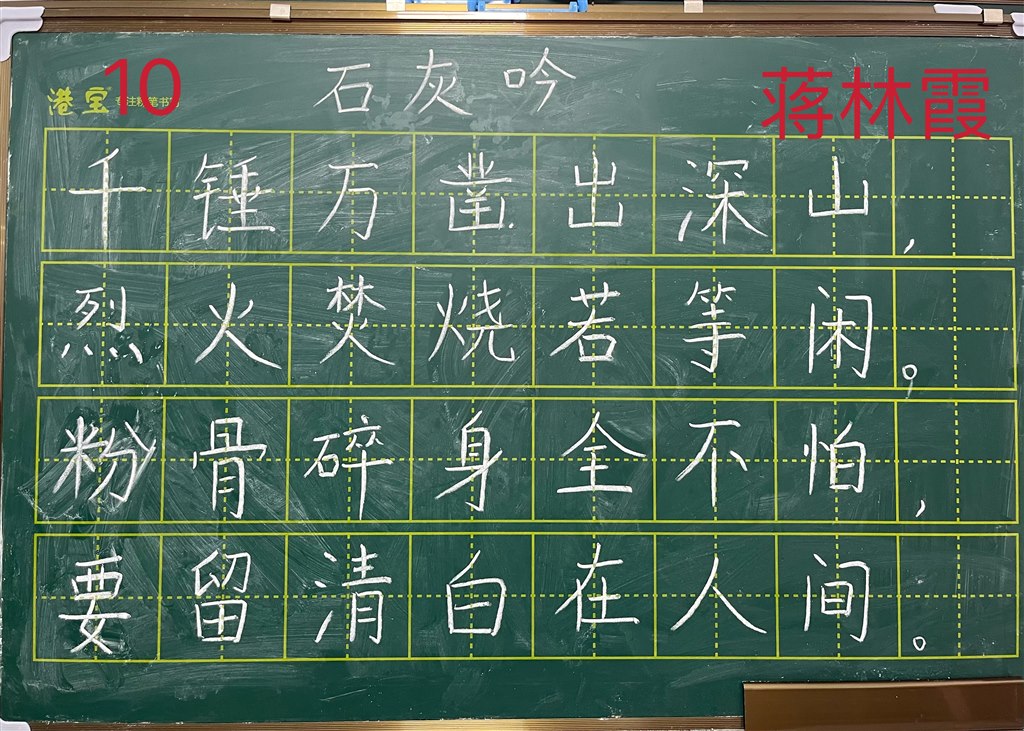 石灰吟
10
蒋林霞
港宝
千锤万凿出深山,
烈火焚烧若等闲。
粉骨碎身全不怕,
要留清白在人间。